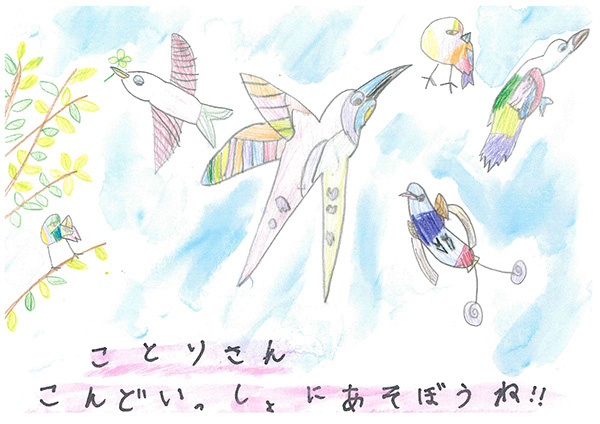 ことりさん
こんどいっしょにあそぼうね!!